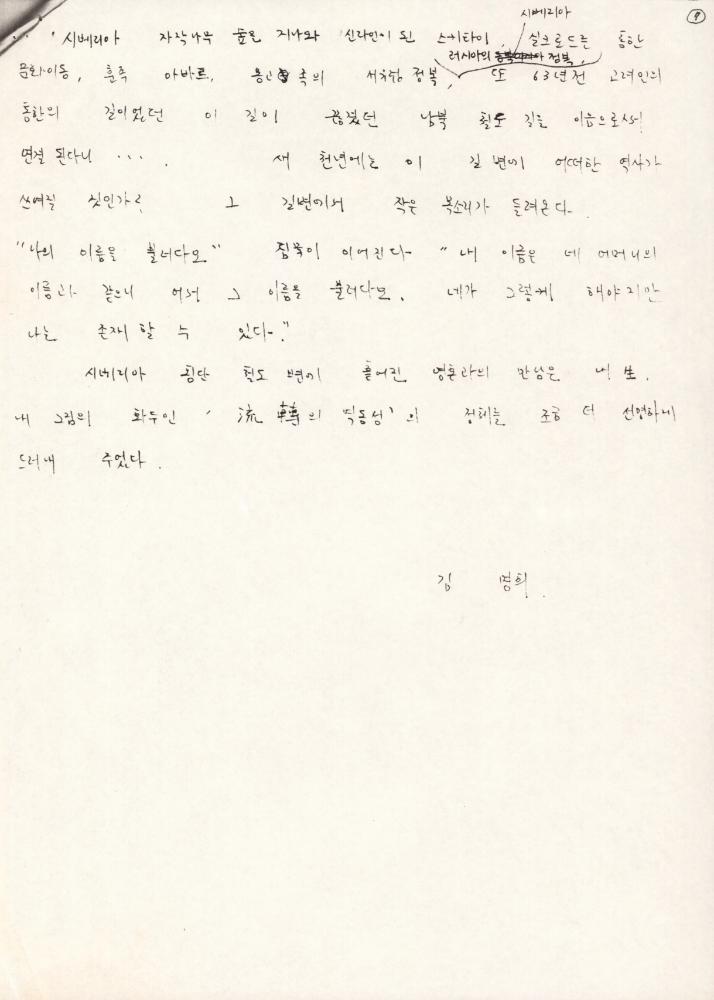 시베리아
⑨
시베리아 자작나무 숲을 지나와 신라인이 된 스키타이, 실크로드를 통한
러시아의 정복,
문화이동, 훈족 아바르, 몽고족의 서측향 정복, 또 63년전 고려인의
통한의 길이었던 이 길이 끊겼던 남북 철도 길을 이음으로서!
연결 된다니 ···. 새 천년에는 이 길 변에 어떠한 역사가
쓰여질 것인가? 그 길변에서 작은 목소리가 들려온다.
"나의 이름을 불러다오" 침묵이 이어진다 "내 이름은 네 어머니의
이름과 같으니 어서 그 이름을 불러다오. 네가 그렇게 해야지만
나는 존재 할 수 있다."
시베리아 횡단 철도 변에 흩어진 영혼과의 만남은 내 生,
내 그림의 화두인 '流轉의 역동성'의 정체를 조금 더 선명하게
드러내 주었다.
김 명희.